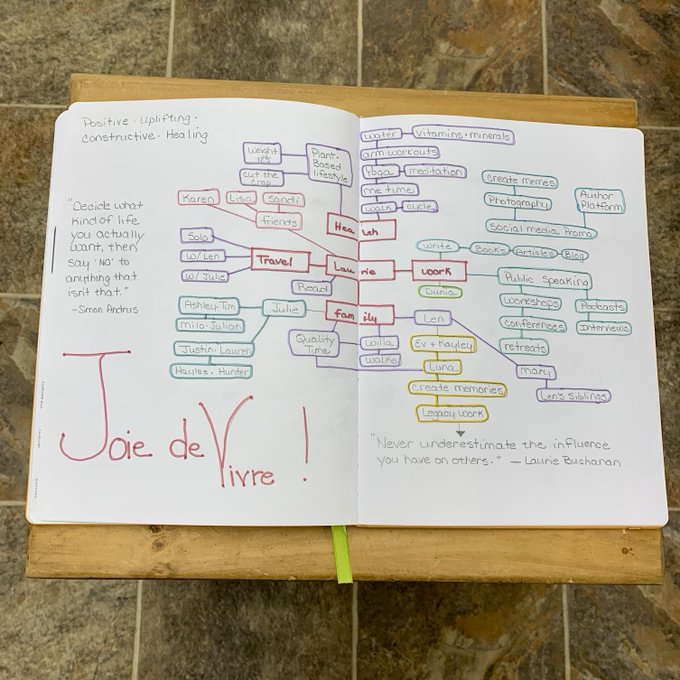 Positive · Uplifting ·
Constructive · Healing
"Decide what
kind of life
you actually
want, then
say 'NO' to
anything that
isn't that."
- Simon Andrus
Weight
125
cut the
crap
Plant-
Based
lifestyle
Karen
Lisa
Sandi
friends
Solo
w/Len
w/Julie
Travel
Health
Laurie
Read
family
Ashley·Tim
Milo·Julian
Julie
Justin·Lauren
Haylee·Hunter
Quality
Time
willa
walks
water
vitamins·minerals
arm workouts
Yoga
meditation
me time
walk
cycle
create memes
Photography
social media Promo
Author
Platform
write
Books
Articles
Blog
work
Dunia
Public Speaking
workshops
conferences
retreats
Podcasts
Interviews
Len
Ev + Kayley
Luna
create memories
Legacy work
many
Len's Siblings
"Never underestimate the influence
you have on others." - Laurie Buchanan
Joie de Vivre!